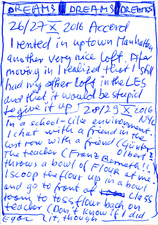 DREAMS DREAMS DREAMS
26/27 X 2016 Accord
I rented in uptown Manhattan
another very nice Loft. After
moving in I realized that I still
had my other Loft in the LES
and that it would be stupid
to give it up 28/29 X 2016
In a school-like environment.
I chat with a friend in the
last row with a friend
the teacher (Franz
throws a bowl of flour at me
I scoop the flour up in a bowl
and go to front of class
room to toss flour back on
teacher (Don't know if I did
it, though